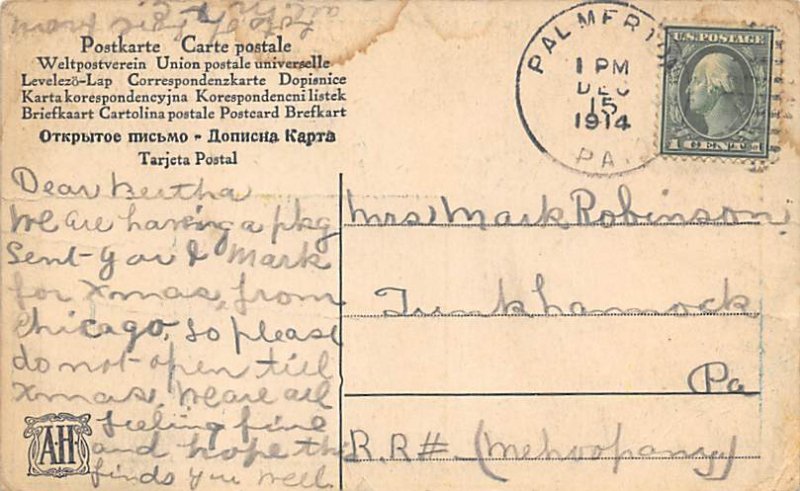 Postkarte Carte postale
Weltpostverein Union postale universelle
Levelezö-Lap Correspondenzkarte Dopisnice
Karta korespondencyjna Korespondencni listek
Briefkaart Cartolina postale Postcard Brefkart
Открытое письмо - Дописна Карта
Tarjeta Postal
PALMERTON
1 PM
DEC
15
1914
PA.
U.S. POSTAGE
1 CENT 1
Dear Bertha
We are having a pkg
Sent you & Mark
for Xmas, from
Chicago, so please
do not open till
Xmas. We are all
feeling fine
and hope this
finds you well.
Lots of
from
all
Mrs Mark Robinson
Tunkhannock
Pa
R.R.# (Mehoopany)
A.H.